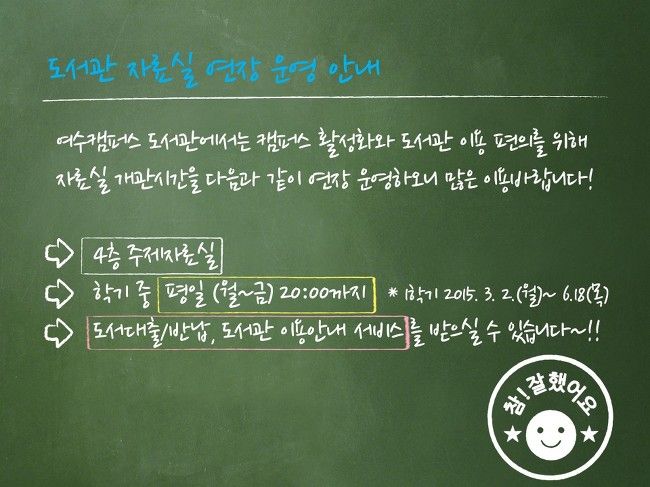 도서관 자료실 연장 운영 안내
여수캠퍼스 도서관에서는 캠퍼스 활성화와 도서관 이용 편의를 위해
자료실 개관시간을 다음과 같이 연장 운영하오니 많은 이용바랍니다!
4층 주제자료실
학기 중 평일 (월~금) 20:00까지 * 1학기 2015. 3. 2.(월)~ 6.18(목)
도서대출/반납, 도서관 이용안내 서비스를 받으실 수 있습니다~!!
참! 잘했어요